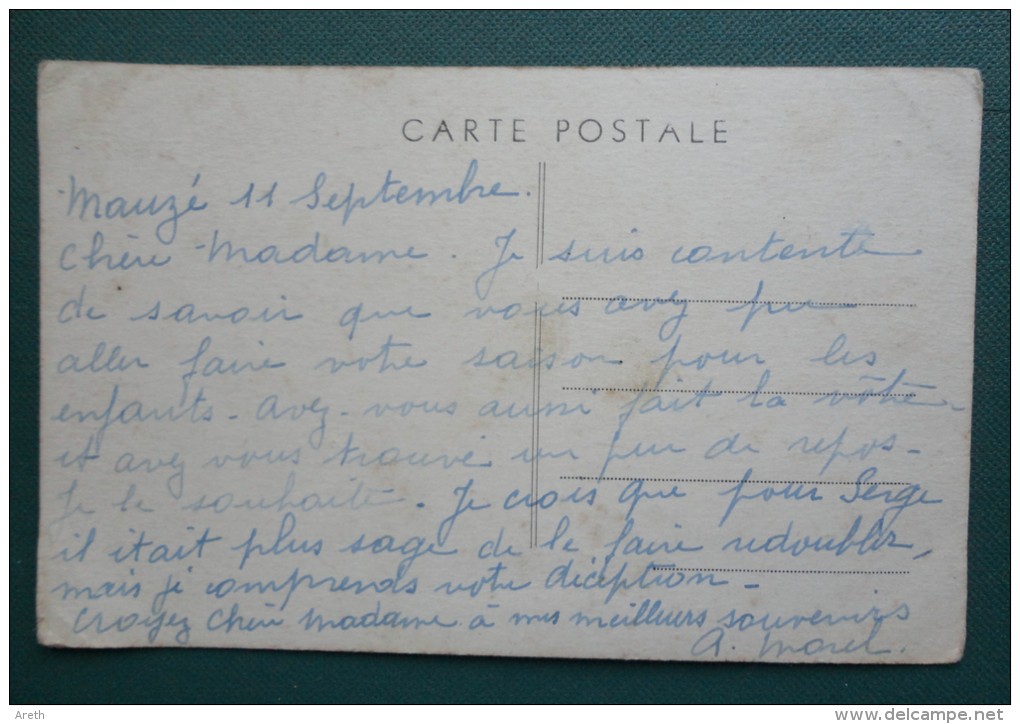 CARTE POSTALE
Mauzé 11 Septembre.
Chère Madame. Je suis contente
de savoir que vous avez pu
aller faire votre saison pour les
enfants - avez-vous aussi fait la vôtre -
et avez vous trouvé un peu de repos -
Je le souhaite. Je crois que pour Serge
il était plus sage de le faire redoubler,
mais je comprends votre déception -
Croyez Chère Madame à mes meilleurs souvenirs
A. Morel.
Areth
www.delcampe.net